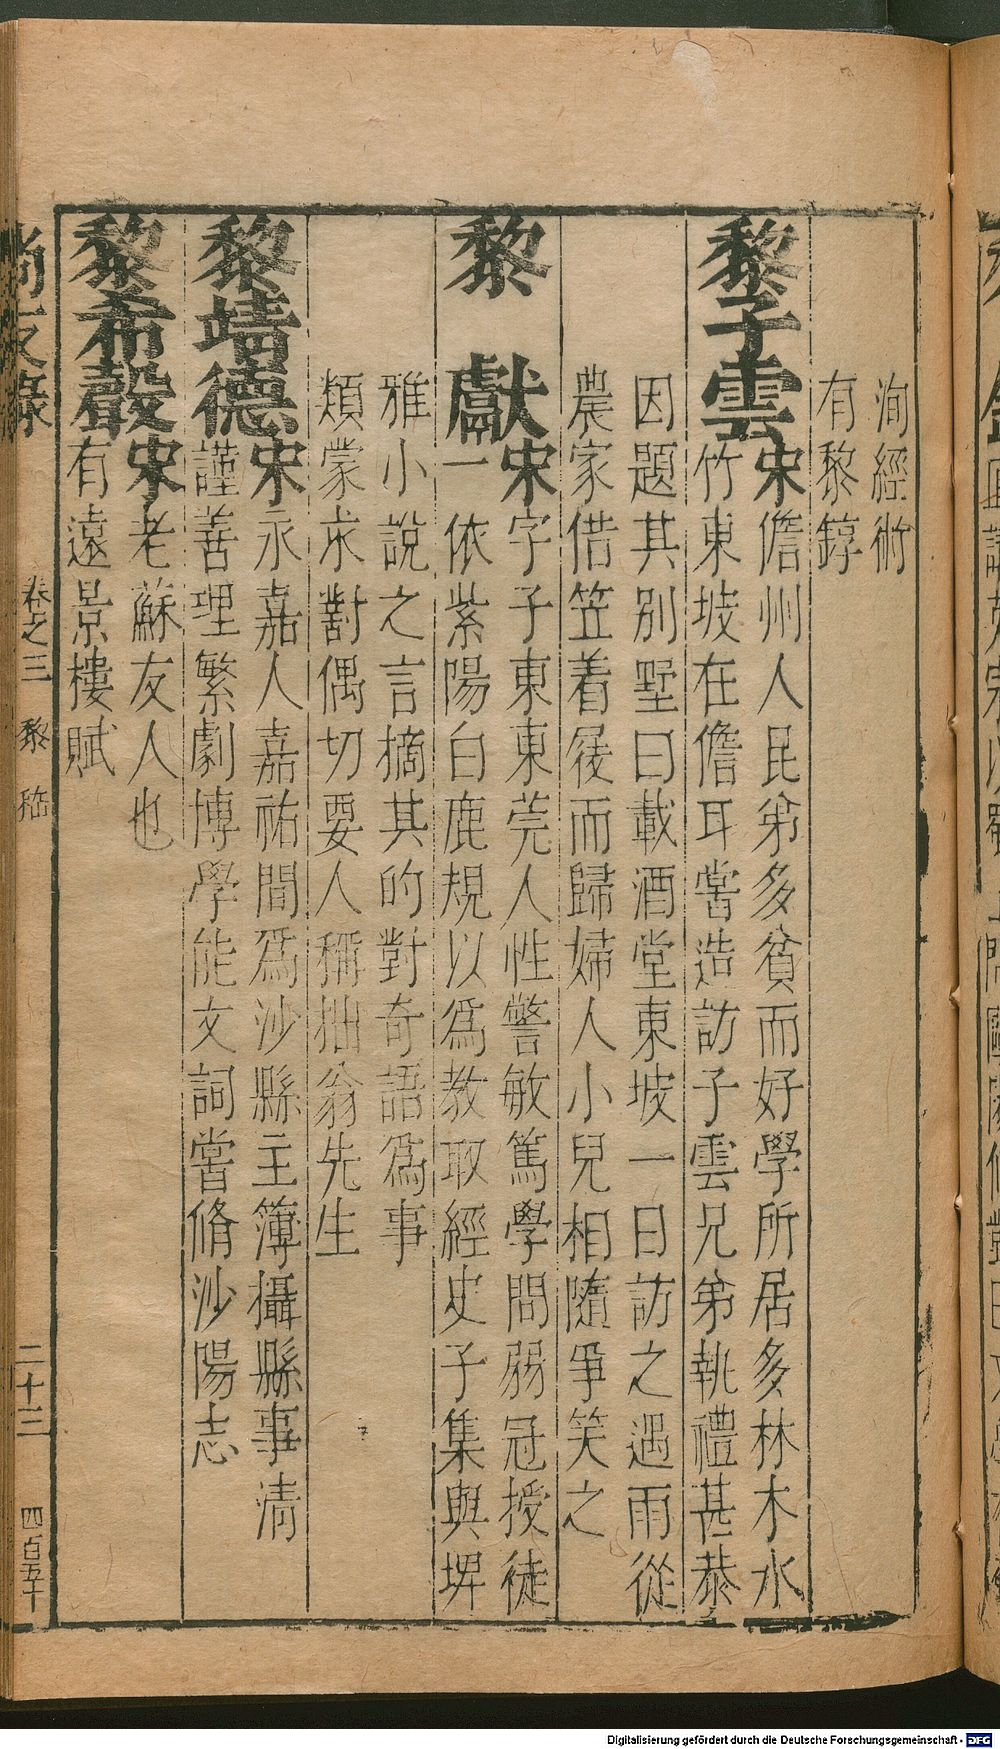 洵經術
有黎錞
黎子雲宋儋州人昆弟多貧而好學所居多林木水
竹東坡在儋耳嘗造訪子雲兄弟執禮甚恭
因題其別墅曰載酒堂東坡一日訪之遇雨從
農家借笠着屐而歸婦人小兒相隨爭笑之
黎獻宋字子東東莞人性警敏篤學問弱冠授徒
一依紫陽白鹿規以爲教取經史子集與埤
雅小說之言摘其的對奇語爲事
類蒙求對偶切要人稱拙翁先生
黎靖德宋永嘉人嘉祐間爲沙縣主簿攝縣事清
謹善理繁劇博學能文詞嘗脩沙陽志
黎希聲宋老蘇友人也
有遠景樓賦
尚友錄 卷之三 黎 嵇 二十三 四百五十
Digitalisierung gefördert durch die Deutsche Forschungsgemeinschaft - DFG